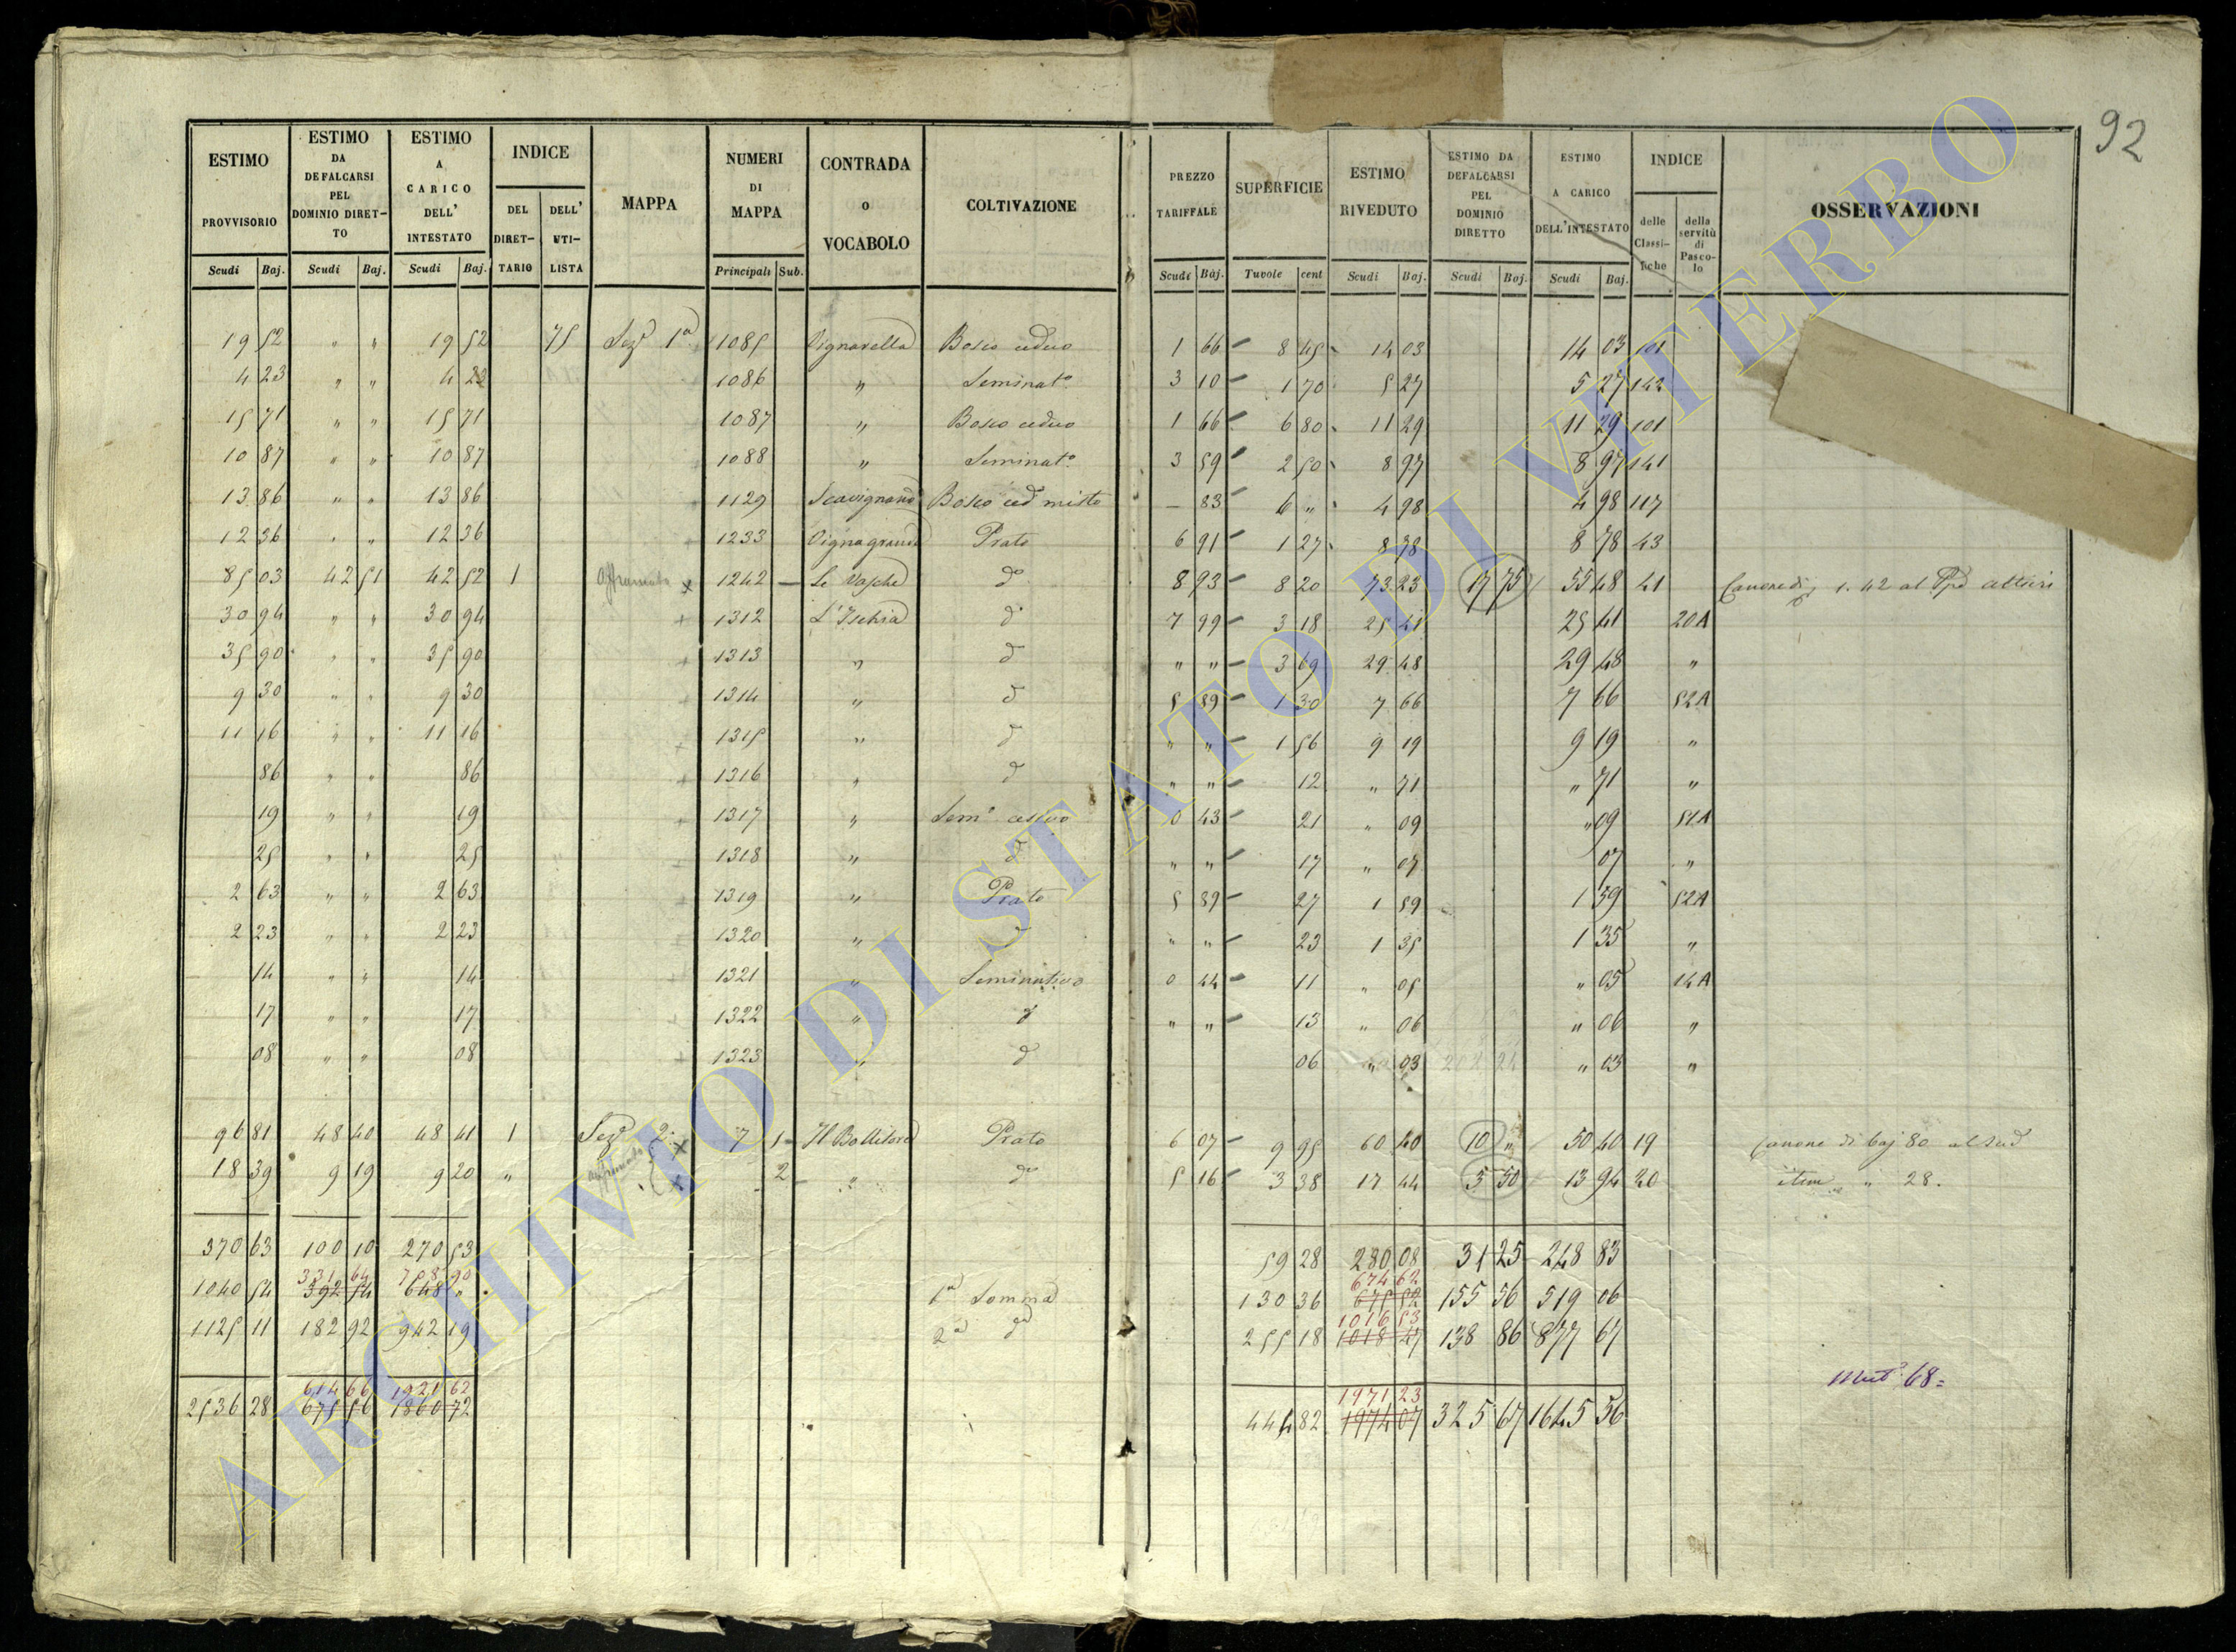 92
ESTIMO PROVVISORIO | ESTIMO DA DEFALCARSI PEL DOMINIO DIRETTO | ESTIMO A CARICO DELL' INTESTATO | INDICE DEL DIRETTARIO | DELL' UTILISTA | MAPPA | NUMERI DI MAPPA | CONTRADA O VOCABOLO | COLTIVAZIONE | PREZZO TARIFFALE | SUPERFICIE | ESTIMO RIVEDUTO | ESTIMO DA DEFALCARSI PEL DOMINIO DIRETTO | ESTIMO A CARICO DELL'INTESTATO | INDICE delle Classifiche | della servitù di Pascolo | OSSERVAZIONI
Scudi Baj. | Scudi Baj. | Scudi Baj. | Principali Sub. | Scudi Baj. | Tavole cent | Scudi Baj. | Scudi Baj. | Scudi Baj.
19 52 " " 19 52 75 Sez.e 1a 1085 Vignarella Bosco ceduo 1 66 8 45 14 03 14 03 101
4 23 " " 4 23 1086 " Seminato 3 10 1 70 5 27 5 27 142
15 71 " " 15 71 1087 " Bosco ceduo 1 66 6 80 11 29 11 29 101
10 87 " " 10 87 1088 " Seminato 3 59 2 50 8 97 8 97 141
13 86 " " 13 86 1129 Scavignano Bosco ced misto — 83 6 " 4 98 4 98 117
12 36 " " 12 36 1233 Vignagrande Prato 6 91 1 27 8 78 8 78 43
85 03 42 51 42 52 1 Affrancato x 1242 Le Vasche do 8 93 8 20 73 23 17 75 55 48 41 Canone di 1. 42 al
30 94 " " 30 94 1312 L'Ischia do 7 99 3 18 25 41 25 41 20A
35 90 " " 35 90 1313 " do " " 3 69 29 48 29 48 "
9 30 " " 9 30 1314 " do 5 89 1 30 7 66 7 66 52A
11 16 " " 11 16 1315 " do " " 1 56 9 19 9 19 "
86 " " 86 1316 " do " " 12 " 71 " 71 "
19 " " 19 1317 " Semo 0 43 21 " 09 " 09 51A
25 " " 25 1318 " do " " 17 " 07 07 "
2 63 " " 2 63 1319 " Prato 5 89 27 1 59 1 59 52A
2 23 " " 2 23 1320 " do " " 23 1 35 1 35 "
14 " " 14 1321 " Seminativo 0 44 11 " 05 " 05 14A
17 " " 17 1322 " do " " 13 " 06 " 06 "
08 " " 08 1323 " do 06 " 03 " 03 "
96 81 48 40 48 41 1 Sez.e 2a x 7 1 Il Bollitore Prato 6 07 9 95 60 40 10 " 50 40 19 Canone di baj 80 al
18 39 9 19 9 20 " affrancato x 2 " do 5 16 3 38 17 44 3 50 13 94 20 item " 28.
370 63 100 10 270 53 59 28 280 08 31 25 248 83
331 64 708 90 674 62
1040 54 392 54 648 " 1a Somma 130 36 675 52 155 56 519 06
1016 53
1125 11 182 92 942 19 2a do 255 18 1018 47 138 86 877 67
Mut.e 68=
614 66 1921 62 1971 23
2536 28 675 56 1860 72 444 82 1974 07 325 67 1645 56
ARCHIVIO DI STATO DI VITERBO